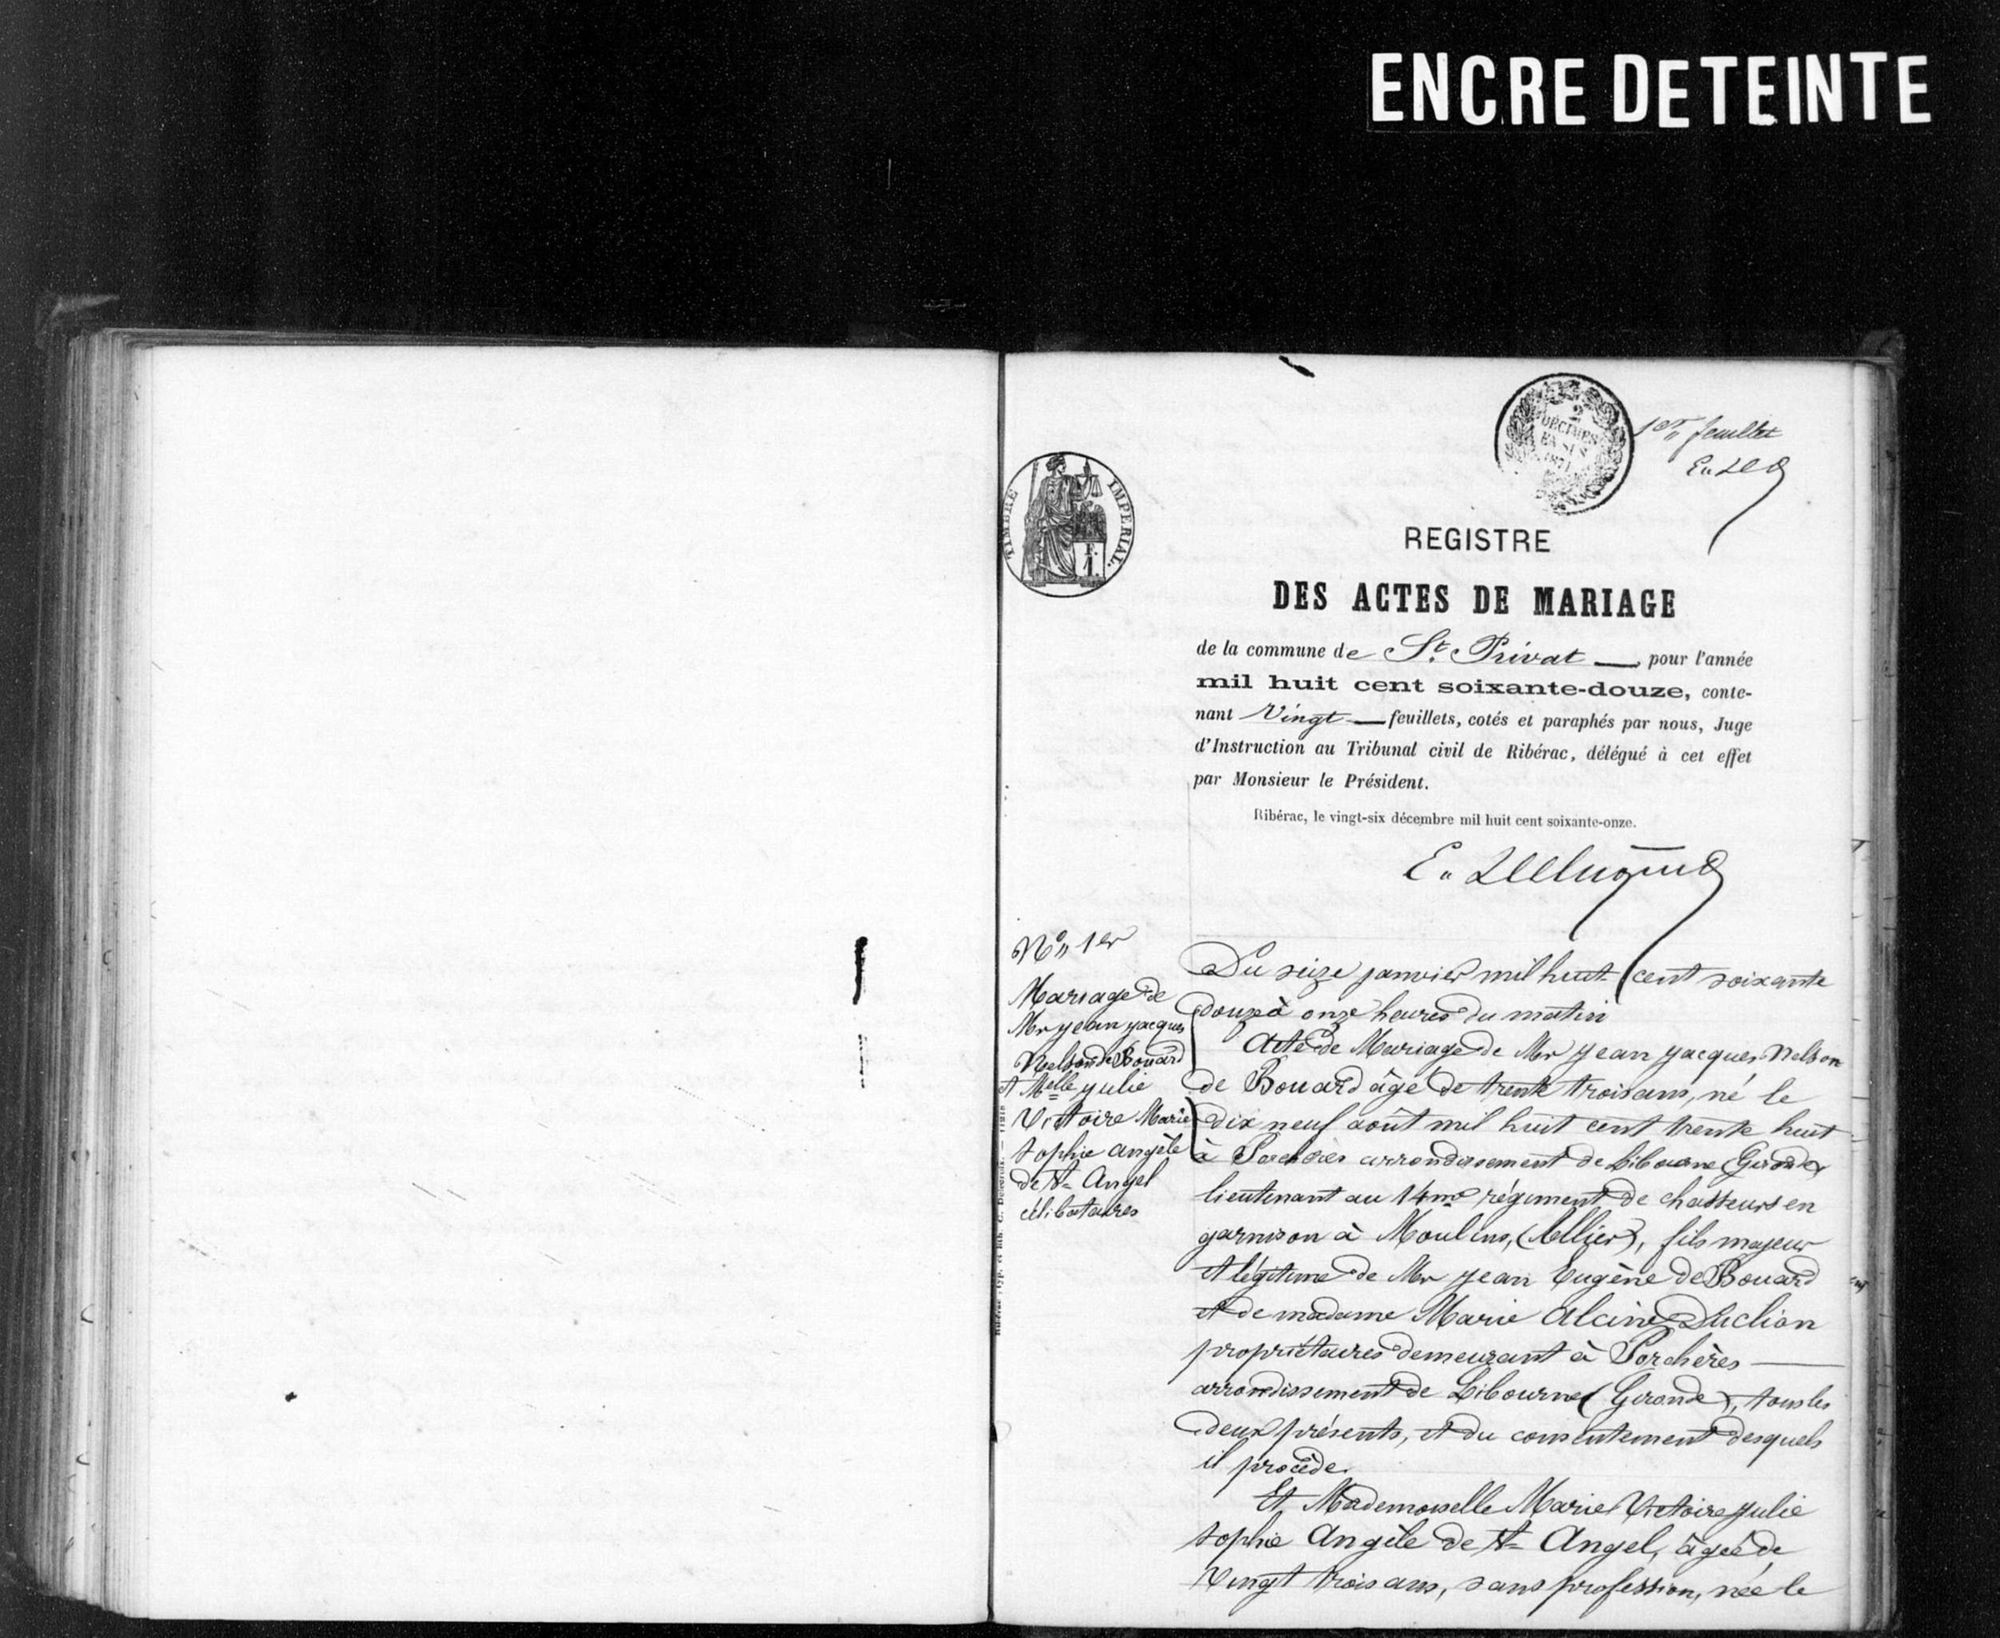 ENCRE DETEINTE
2
DECIMES
EN SUS
1871
1er feuillet
TIMBRE IMPERIAL.
F.
1.
REGISTRE
DES ACTES DE MARIAGE
de la commune de St. Privat pour l'année
mil huit cent soixante-douze, conte-
nant Vingt feuillets, cotés et paraphés par nous, Juge
d'Instruction au Tribunal civil de Ribérac, délégué à cet effet
par Monsieur le Président.
Ribérac, le vingt-six décembre mil huit cent soixante-onze.
No 1er
Mariage de
Mr jean jacques
Nelson de Bouard
et Melle julie
Victoire Marie
sophie angèle
de St Angel
célibataires
Du seize janvier mil huit cent soixante
douze à onze heures du matin
Acte de Mariage de Mr jean jacques Nelson
de Bouard âgé de trente trois ans, né le
dix neuf août mil huit cent trente huit
à Porchères arrondissement de Libourne (Gironde)
lieutenant au 14me régiment de chasseurs en
garnison à Moulins, (Allier), fils majeur
et légitime de Mr jean Eugène de Bouard
et de madame Marie Alcine Duclion
propriétaires demeurant à Porchères
arrondissement de Libourne (Gironde), tous les
deux présents, et du consentement desquels
il procède.
Et Mademoiselle Marie Victoire julie
sophie Angèle de St Angel, âgée de
Vingt trois ans, sans profession, née le